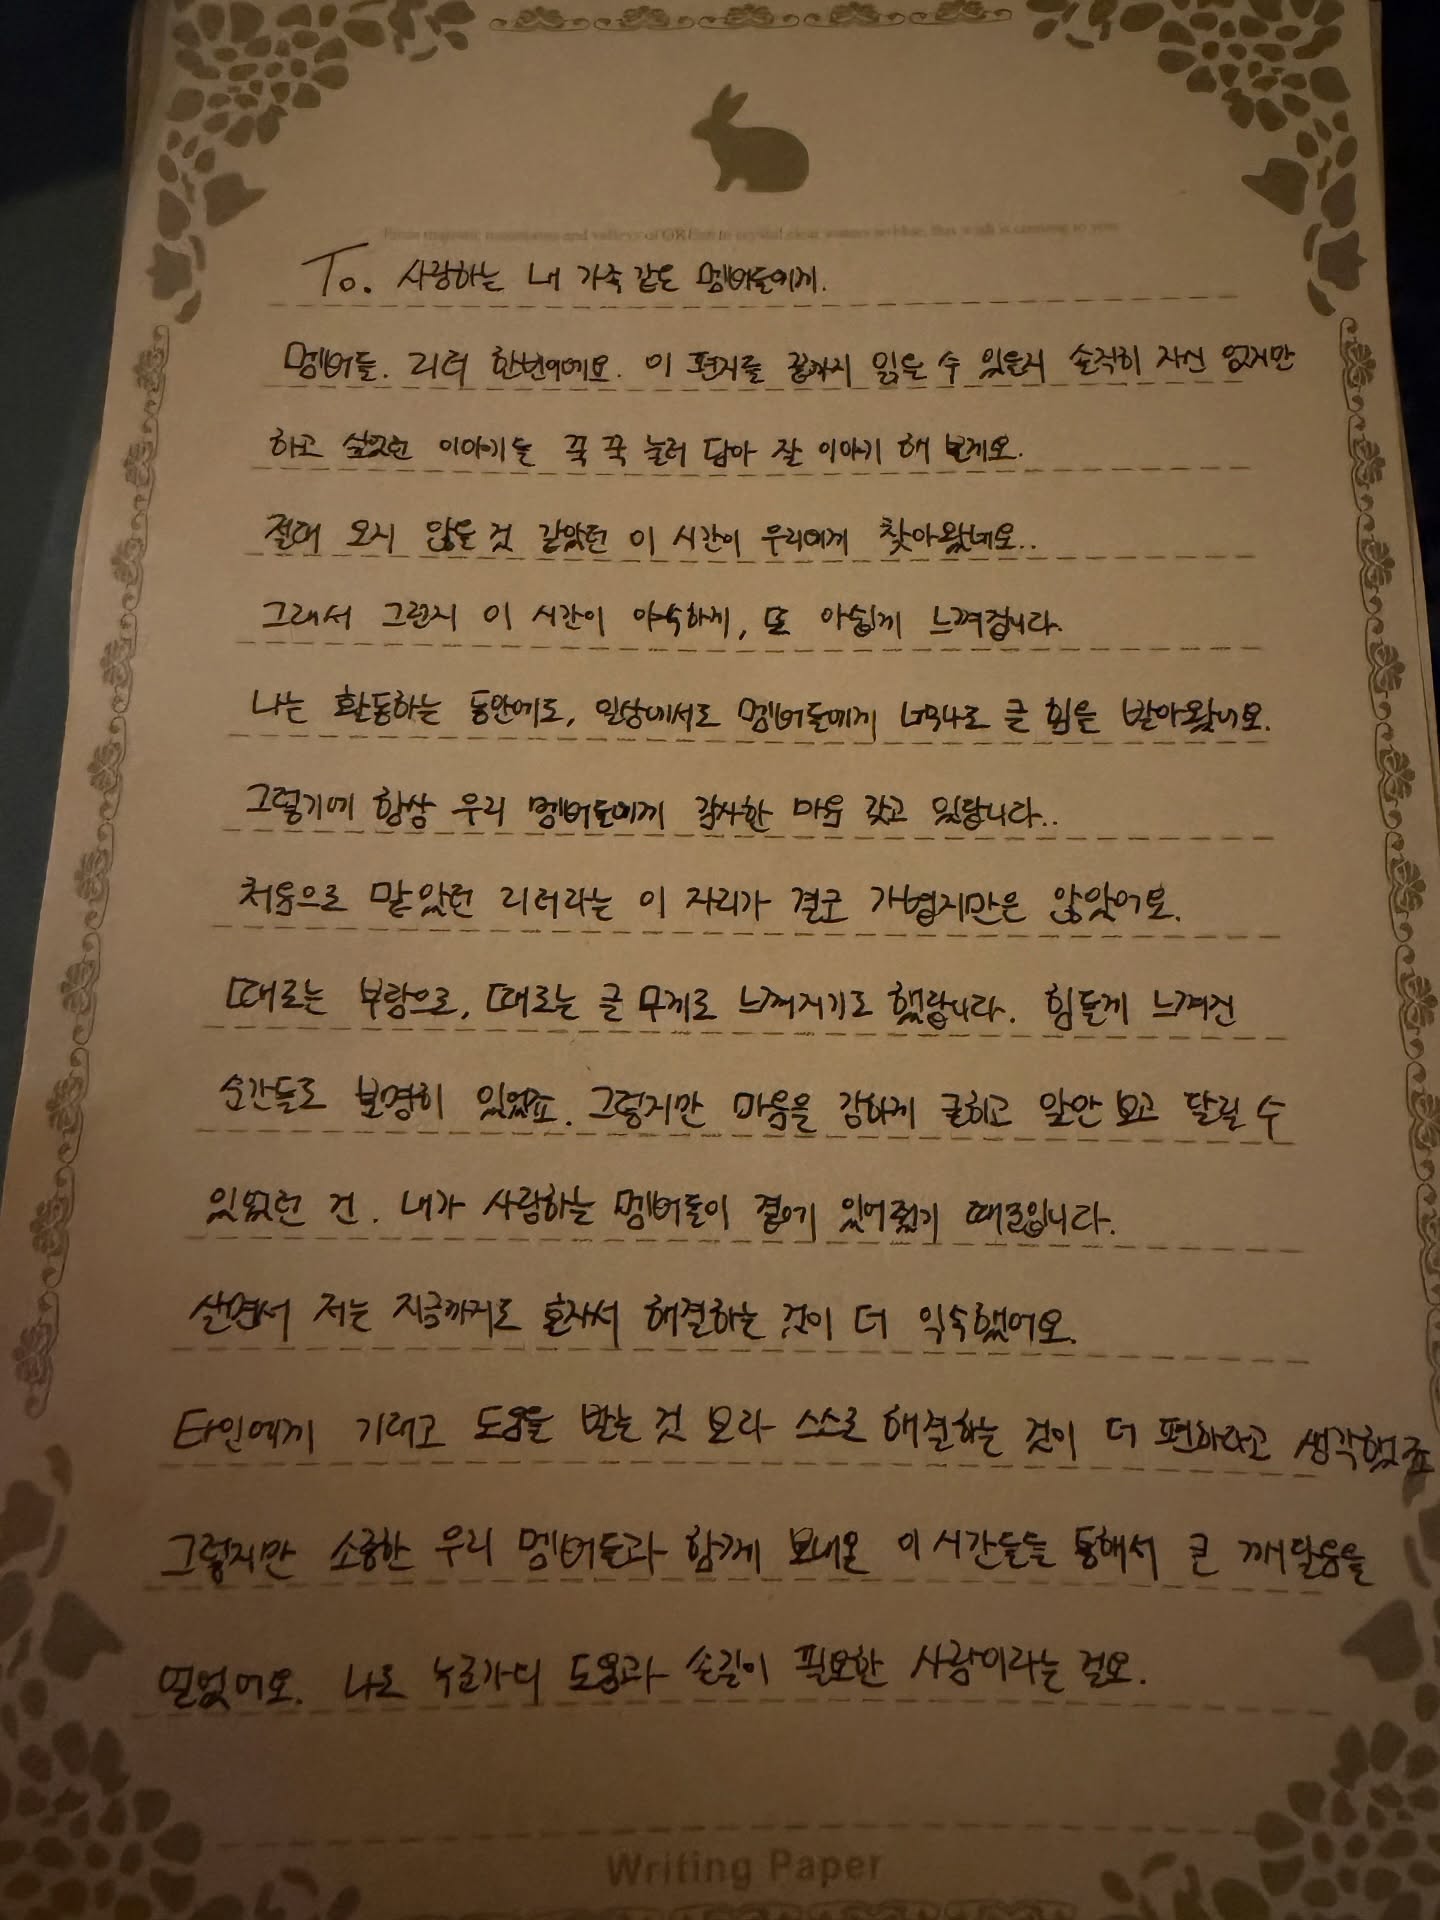 To. 사랑하는 내 가족같은 멤버들에게.
멤버들. 리더 한빈이에요. 이 편지를 끝까지 읽을 수 있을지 솔직히 자신 없지만
하고 싶었던 이야기들 꾹 꾹 눌러 담아 잘 이야기 해 볼게요.
절대 오지 않을 것 같았던 이 시간이 우리에게 찾아왔네요..
그래서 그런지 이 시간이 야속하게, 또 아쉽게 느껴집니다.
나는 활동하는 동안에도, 일상에서도 멤버들에게 너무나도 큰 힘을 받아왔어요.
그렇기에 항상 우리 멤버들에게 감사한 마음 갖고 있답니다..
처음으로 맡았던 리더라는 이 자리가 결코 가볍지만은 않았어요.
때로는 부담으로, 때로는 큰 무게로 느껴지기도 했답니다. 힘들게 느껴진
순간들도 분명히 있었죠. 그렇지만 마음을 강하게 굳히고 앞만 보고 달릴 수
있었던 건. 내가 사랑하는 멤버들이 곁에 있어줬기 때문입니다.
살면서 저는 지금까지도 혼자서 해결하는 것이 더 익숙했어요.
타인에게 기대고 도움을 받는 것 보다 스스로 해결하는 것이 더 편하다고 생각했죠
그렇지만 소중한 우리 멤버들과 함께 보내온 이 시간들을 통해서 큰 깨달음을
얻었어요. 나도 누군가의 도움과 손길이 필요한 사람이라는 걸요.
Writing Paper